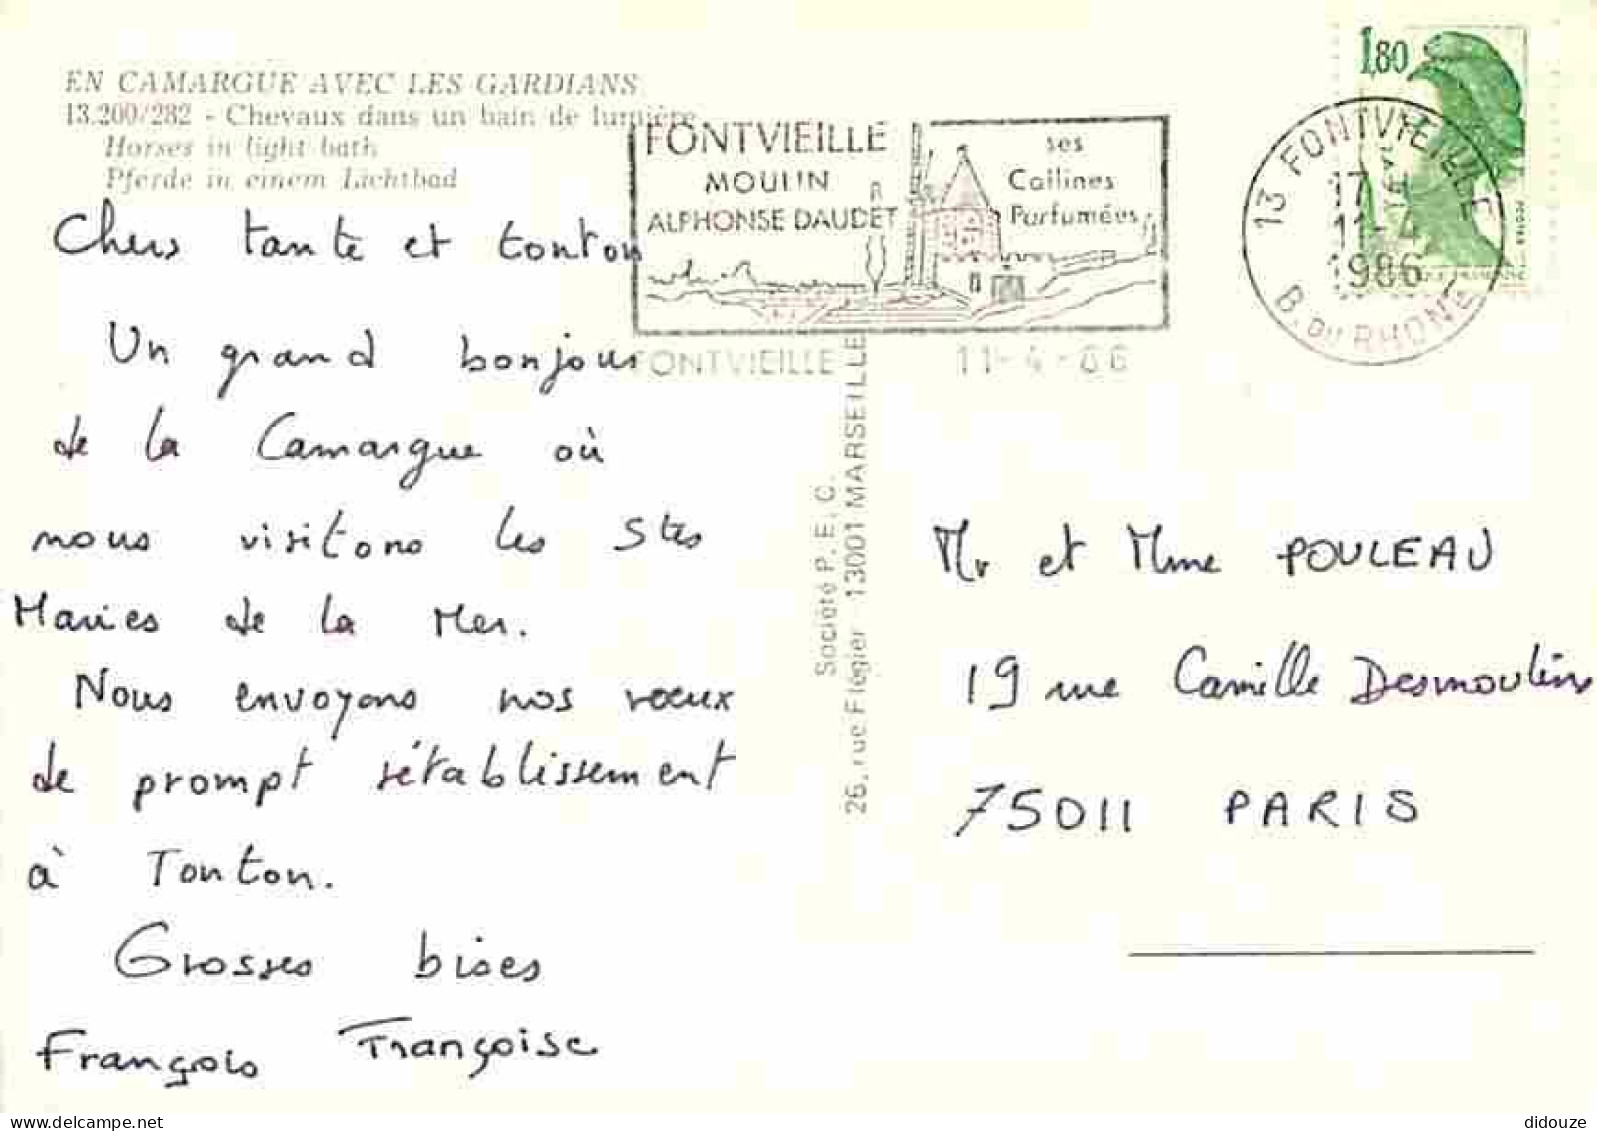 EN CAMARGUE AVEC LES GARDIANS
13.200/282 - Chevaux dans un bain de lumière
Horses in light bath
Pferde in einem Lichtbad
Chers tante et tonton
Un grand bonjour
de la Camargue où
nous visitons les Stes
Maries de la Mer.
Nous envoyons nos vœux
de prompt rétablissement
à Tonton.
Grosses bises
François Françoise
FONTVIEILLE
MOULIN
ALPHONSE DAUDET
ses
Collines
Parfumées
FONTVIEILLE 11-4-86
1,80
13 FONTVIEILLE
17 H
11-4
1986
B. DU RHONE
POSTES
Société P.E.C.
26, rue Flégier - 13001 MARSEILLE
Mr et Mme POULEAU
19 rue Camille Desmoulins
75011 PARIS
didouze